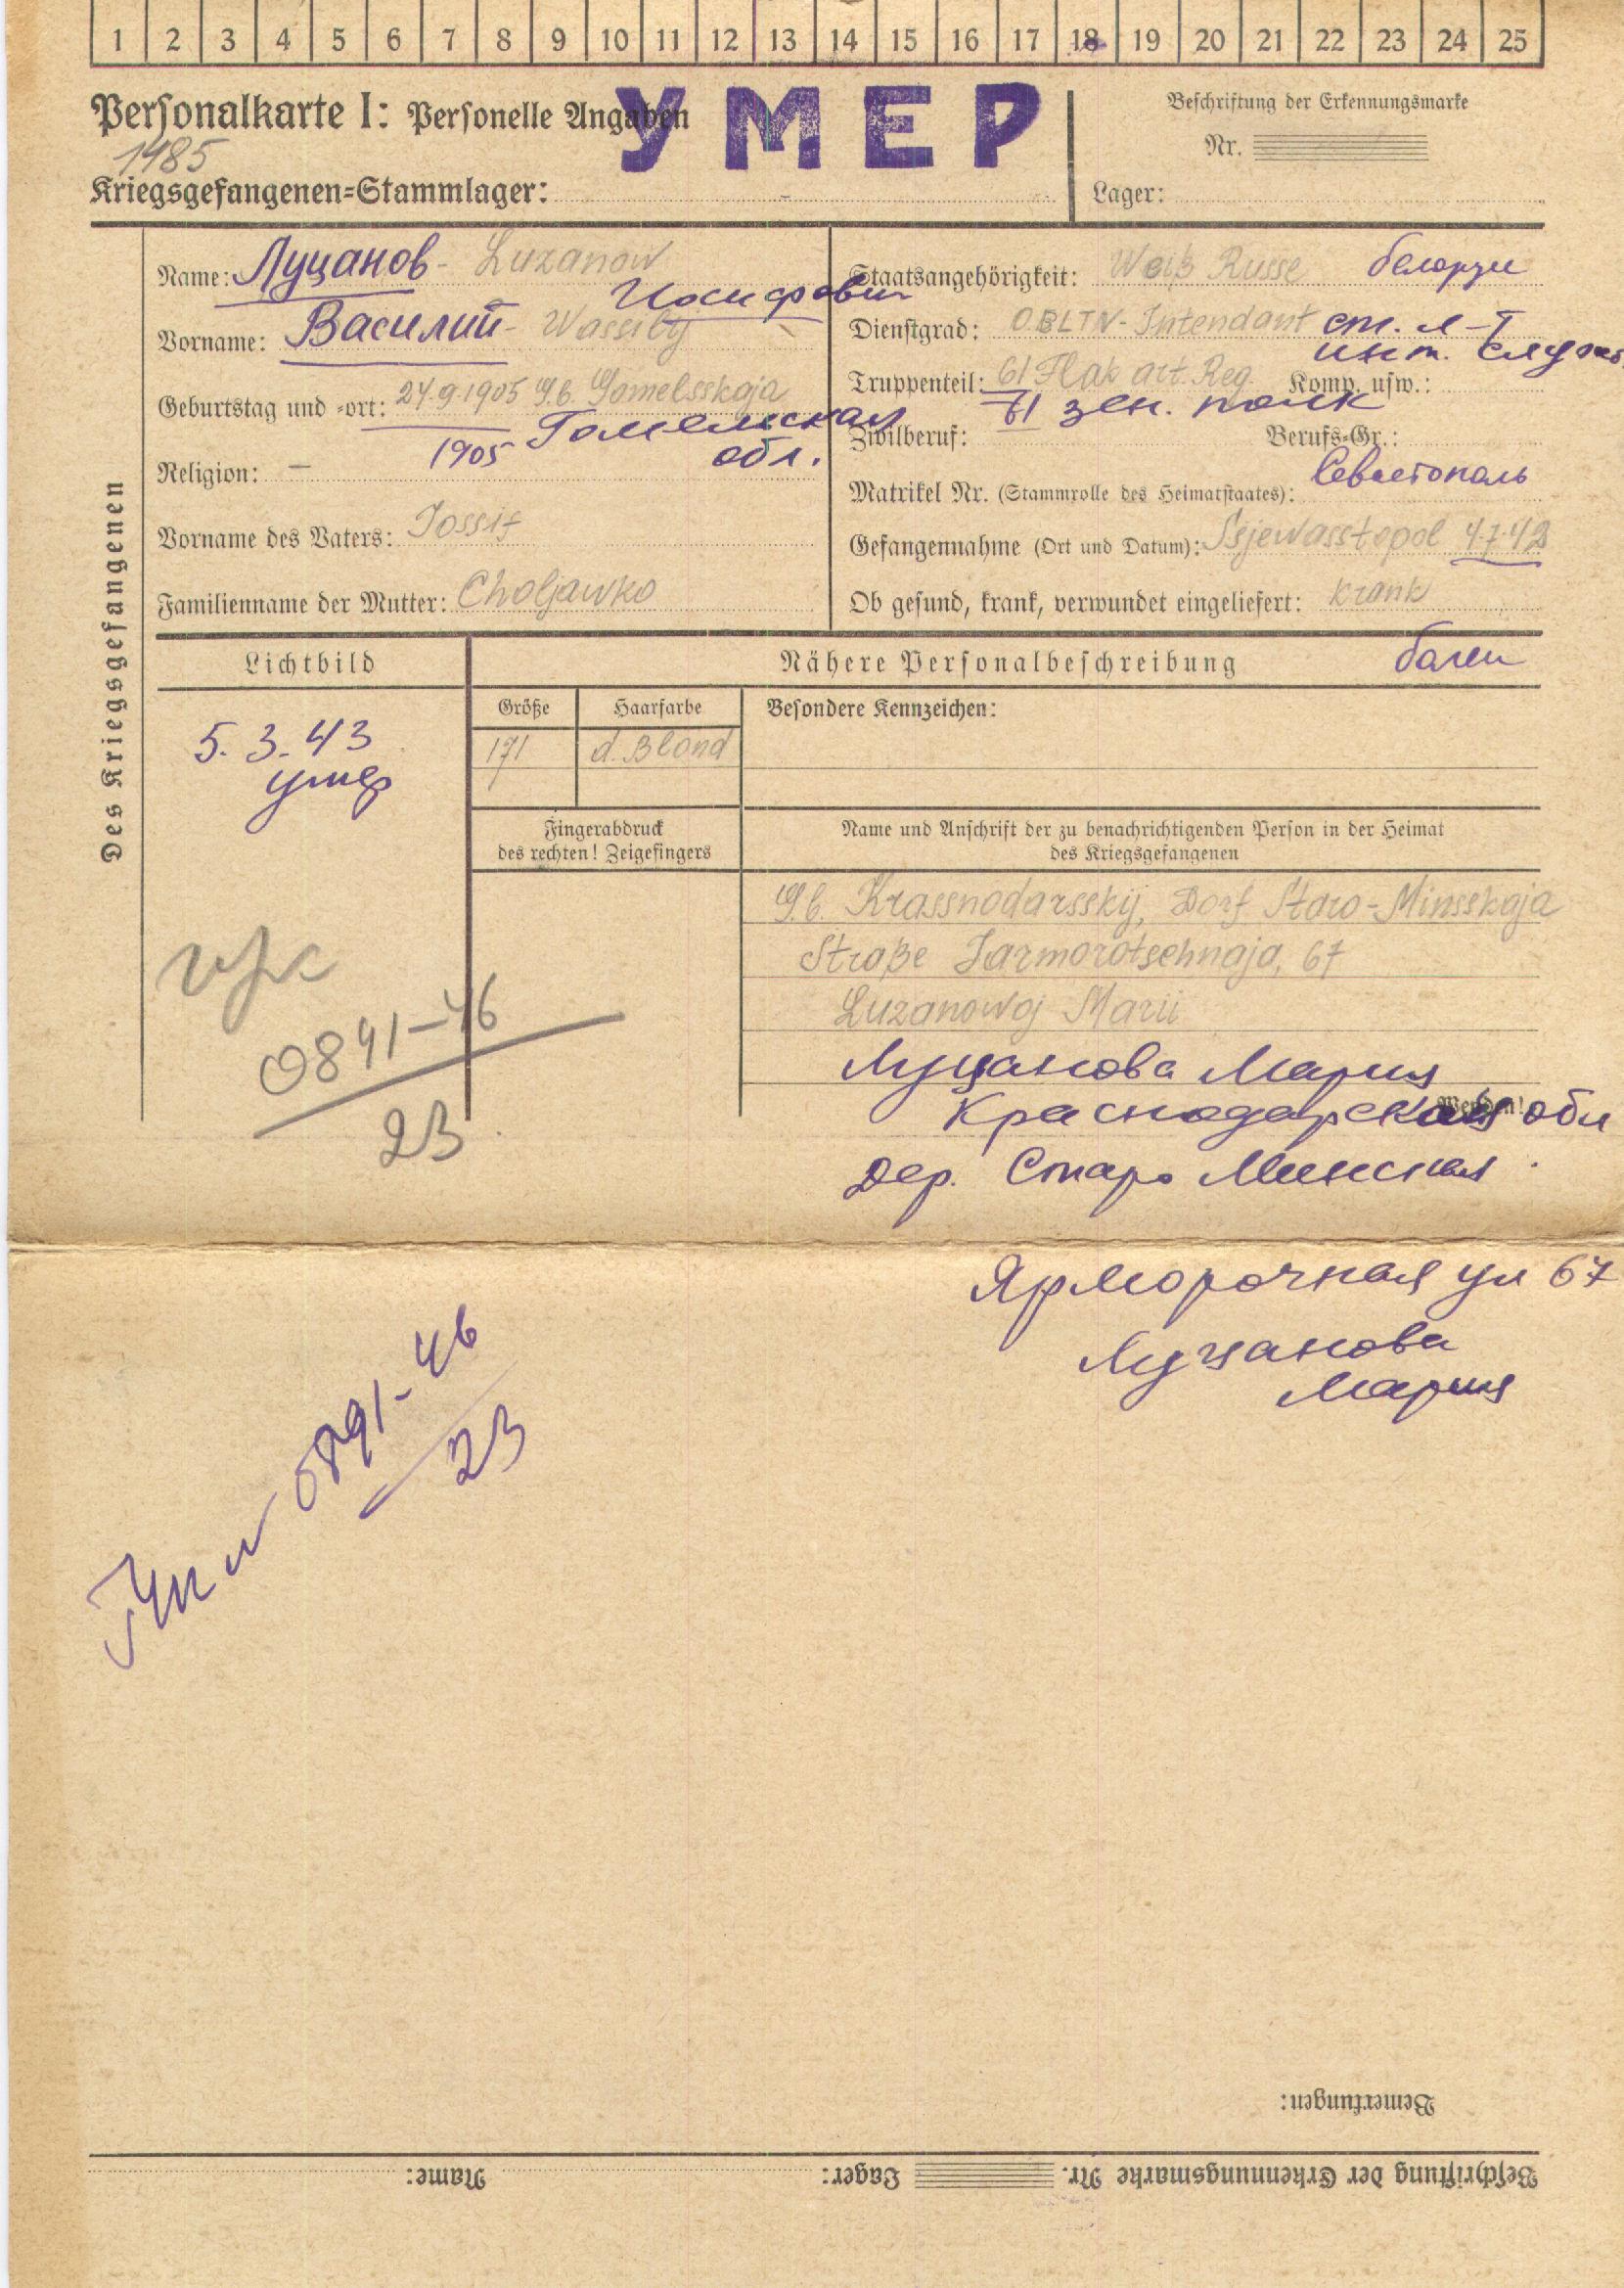 1 2 3 4 5 6 7 8 9 10 11 12 13 14 15 16 17 18 19 20 21 22 23 24 25
Personalkarte I: Personelle Angaben
УМЕР
Beschriftung der Erkennungsmarke
Nr.
1485
Kriegsgefangenen-Stammlager:
Lager:
Des Kriegsgefangenen
Name: Луцанов - Luzanow
Иосифович
Vorname: Василий - Wassilij
Geburtstag und -ort: 24.9.1905 G.b. Gomelsskaja
1905 Гомельская
обл.
Religion: —
Vorname des Vaters: Jossif
Familienname der Mutter: Choljawko
Staatsangehörigkeit: Weiß Russe белорус
Dienstgrad: OBLTN - Intendant ст. л-т
инт. служ
Truppenteil: 61 Flak art. Reg. Komp. usw.:
61 зен. полк
Zivilberuf: Berufs-Gr.:
Севастополь
Matrikel Nr. (Stammrolle des Heimatstaates):
Gefangennahme (Ort und Datum): Ssjewasstopol 4.7.42
Ob gesund, krank, verwundet eingeliefert: krank
болен
Lichtbild
Nähere Personalbeschreibung
Größe Haarfarbe
Besondere Kennzeichen:
171 d. Blond
5.3.43
умер
Fingerabdruck
des rechten! Zeigefingers
Name und Anschrift der zu benachrichtigenden Person in der Heimat
des Kriegsgefangenen
G.b. Krassnodarsskij, Dorf Staro-Minsskaja
Straße Jarmorotschnaja, 67
Luzanowoj Marii
0891-46
23
Луцанова Мария
Wenden!
Краснодарская обл
дер. Старо Минская
Ярморочная ул 67
Луцанова
Мария
0891-46
23
Bemerkungen:
Beschriftung der Erkennungsmarke Nr. Lager: Name: